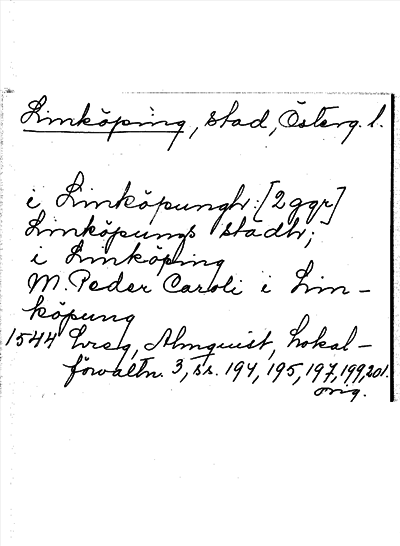 Linköping, stad, Österg. l.
i Linköpungh: [2 ggr]
Linköpungs stadh;
i Linköping
M. Peder Caroli i Lin-
köpung
1544 hreg, Almquist, Lokal-
förvaltn. 3, ss. 194, 195, 197, 199, 201.
orig.